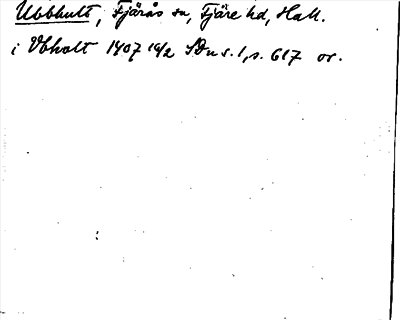 Ubbhult, Fjärås sn, Fjäre hd, Hall.
i Vbholt 1407 16/2 SDns. 1, s. 617 or.